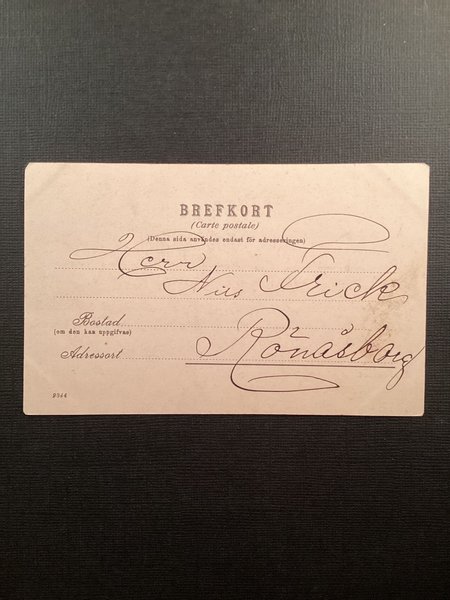 BREFKORT
(Carte postale)
(Denna sida användes endast för adresseringen)
Herr
Nils Frick
Bostad
(om den kan uppgifvas)
Adressort Rönåsborg
2344